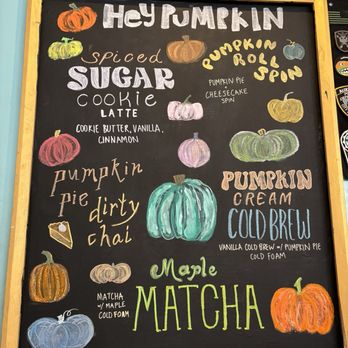 Hey PUMPKIN
spiced
SUGAR
cookie
LATTE
COOKIE BUTTER, VANILLA,
CINNAMON
PUMPKIN
ROLL
SPIN
PUMPKIN PIE
+
CHEESECAKE
SPIN
pumpkin
pie dirty
chai
PUMPKIN
CREAM
COLD BREW
VANILLA COLD BREW w/ PUMPKIN PIE
COLD FOAM
Maple
MATCHA
MATCHA
w/ MAPLE
COLD FOAM